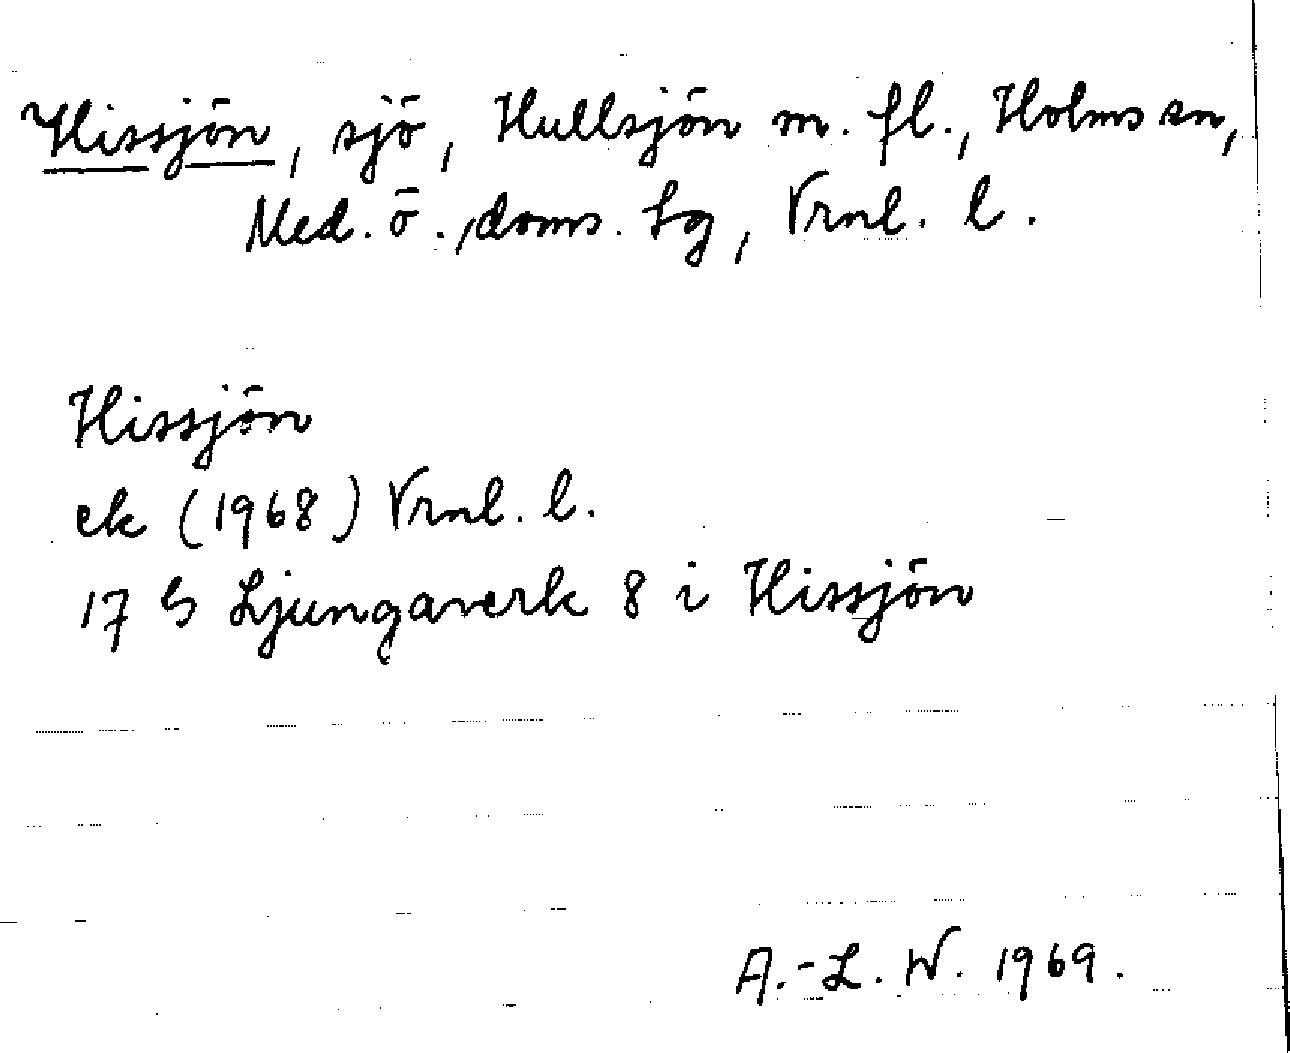 Hissjön, sjö, Hullsjön m. fl., Holms sn,
Med. ö., doms. hg, Vrnl. l.
Hissjön
ek (1968) Vrnl. l.
17 G Ljungaverk 8 i Hissjön
A.-L. W. 1969.